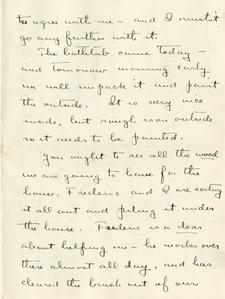 to agree with me — and I mustn't
go any further with it.
The bathtub came today —
and tomorrow morning early
we will unpack it and paint
the outside. It is very nice
inside, but rough iron outside
so it needs to be painted.
You ought to see all the wood
we are going to have for the
house. Frederic and I are sorting
it all out and piling it under
the house. Frederic is a dear
about helping me — he works over
there almost all day, and has
cleared the brush out of our